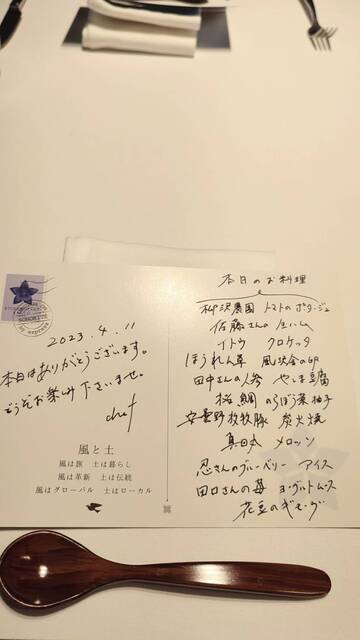 2023.4.11
本日はありがとうございます。
どうぞお楽しみ下さいませ。
chef
風と土
風は旅 土は暮らし
風は革新 土は伝統
風はグローバル 土はローカル
本日のお料理
柳沢農園 トマトのポタージュ
佐藤さんの生ハム
イトウ クロケッタ
ほうれん草 の卵
田中さんの人参 やしま豆腐
桜鯛 のらぼう菜 柚子
安曇野放牧豚 炭火焼
真田丸 メロッソ
忍さんのブルーベリー アイス
田口さんの苺 ヨーグルトムース
花豆のギモーヴ